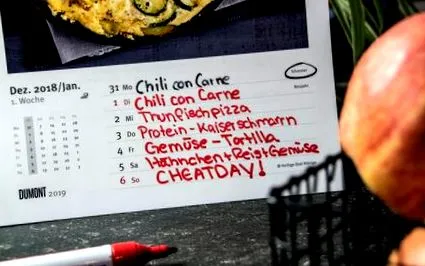 Dez. 2018/Jan.
1. Woche
31 Mo Chili con Carne
Silvester
1 Di Chili con Carne
Neujahr
2 Mi Thunfischpizza
3 Do Protein-Kaiserschmarrn
4 Fr Gemüse-Tortilla
5 Sa Hähnchen+Reis+Gemüse
6 So CHEATDAY!
DUMONT 2019